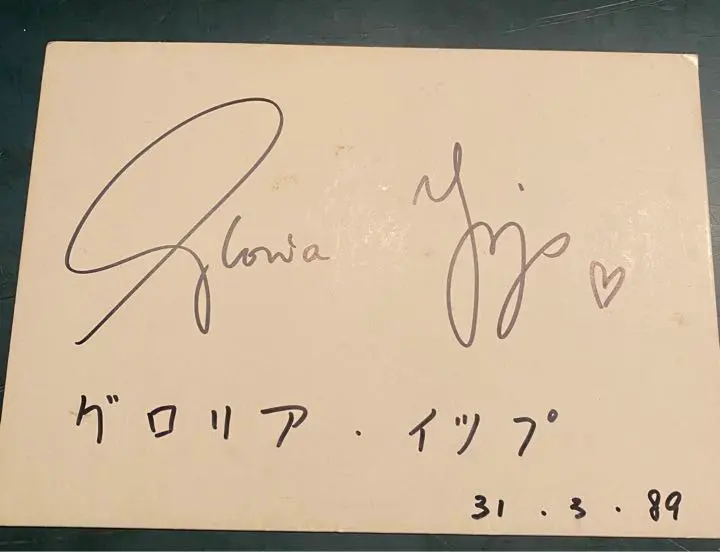 Gloria Yip ♡
グロリア・イップ
31.3.89